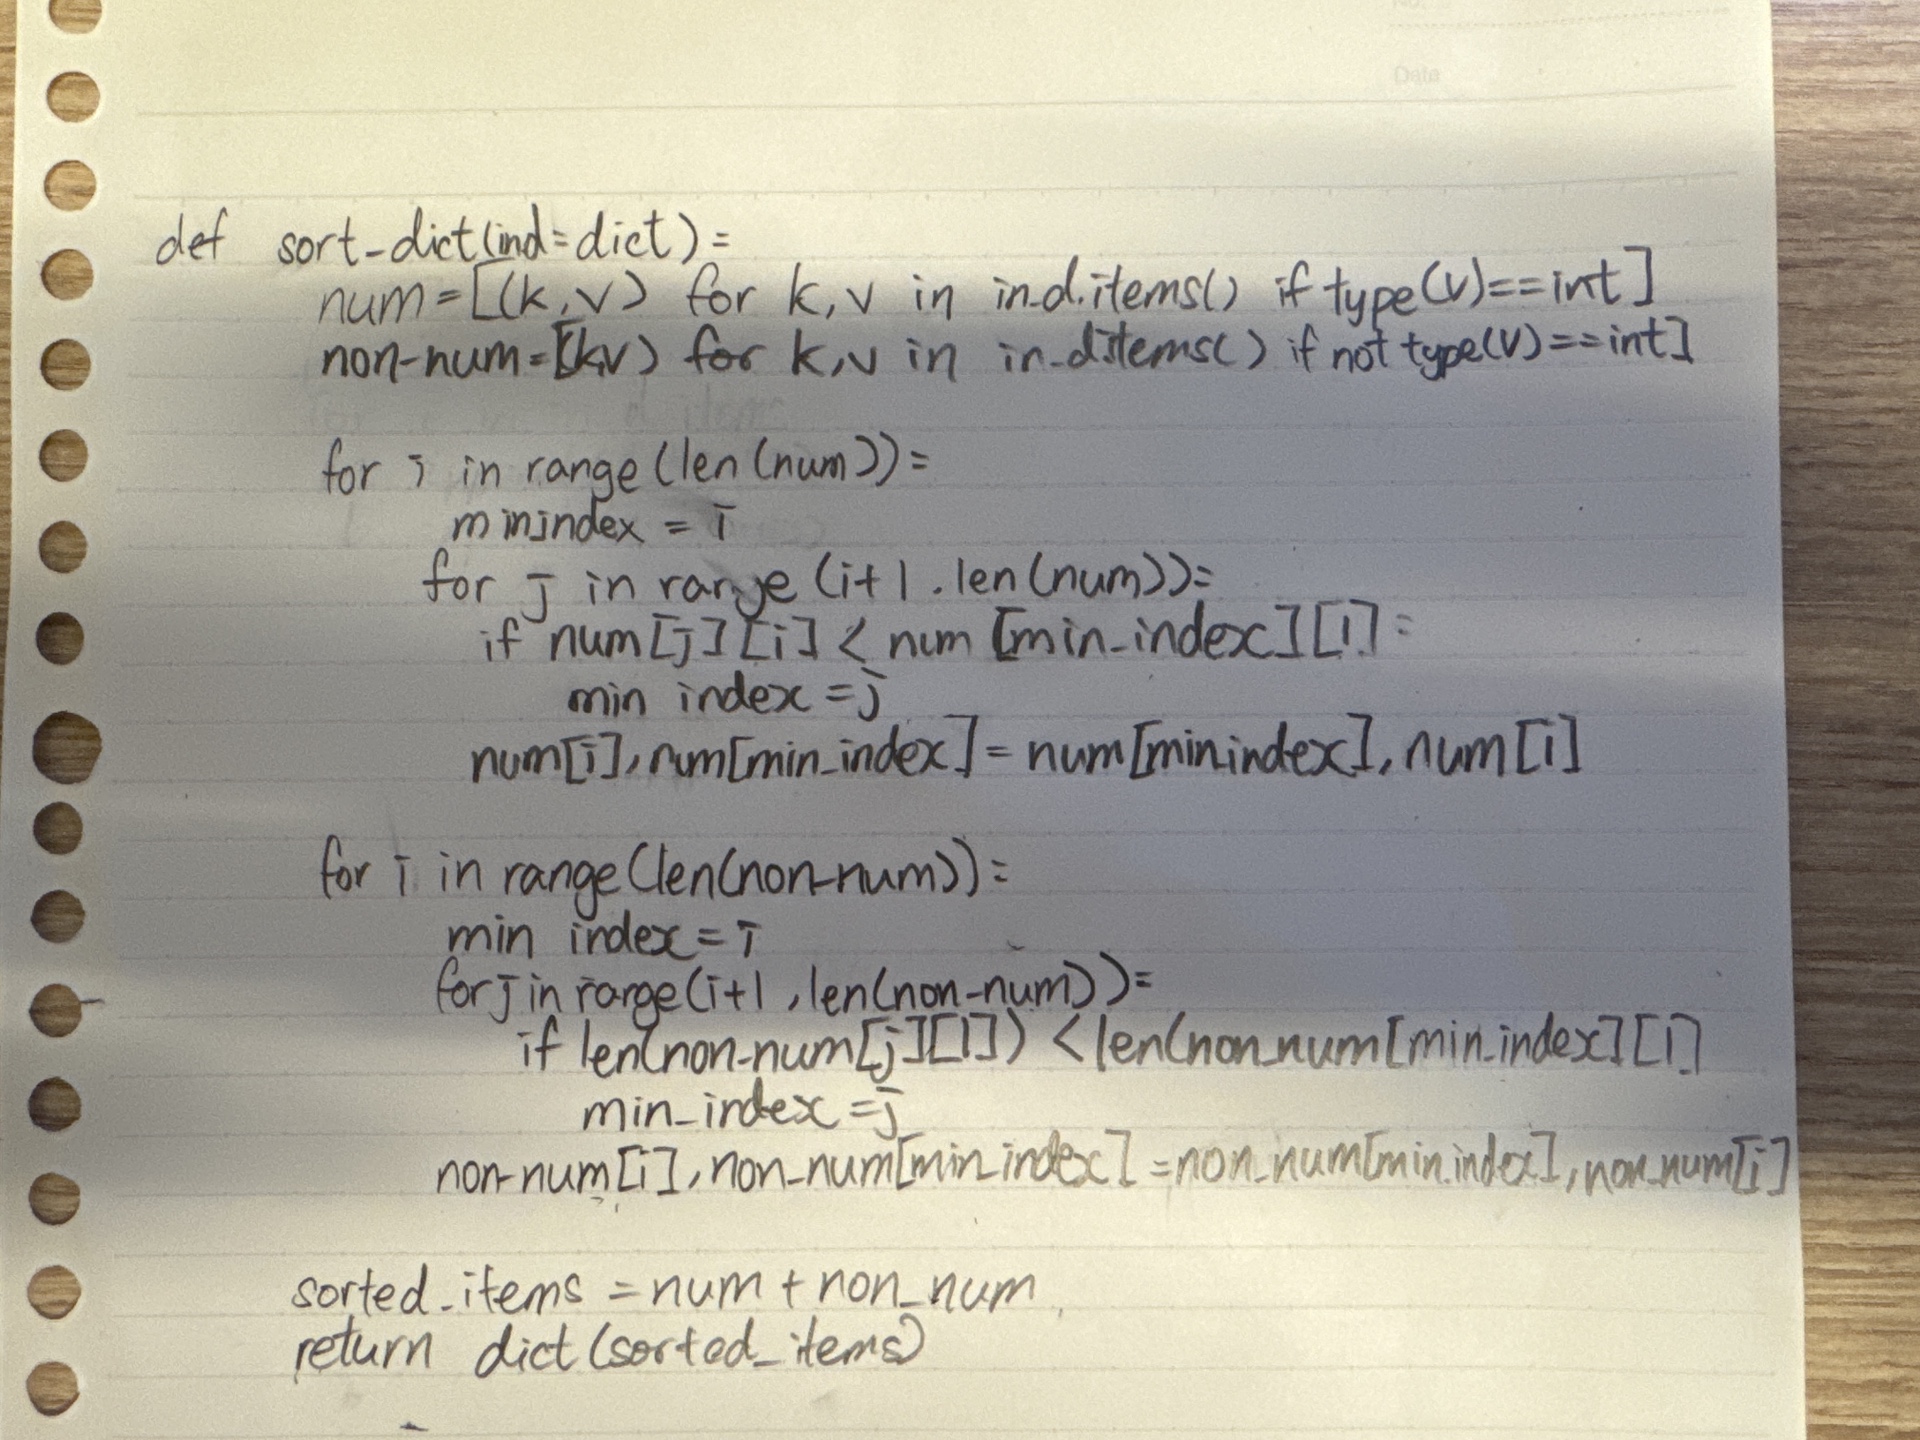 Date
def sort_dict(ind=dict)=
num=[(k,v) for k,v in in_d.items() if type(v)==int]
non-num=[(k,v) for k,v in in_d.items() if not type(v)==int]
for i in range(len(num))=
minindex = i
for j in range(i+1.len(num))=
if num[j][i] < num[min_index][1]=
min index=j
num[i],num[min_index]=num[minindex],num[i]
for i in range(len(non-num))=
min index=i
for j in range(i+1,len(non-num))=
if len(non-num[j][1])<len(non_num[min_index][1]
min_index=j
non-num[i],non_num[min_index]=non_num[min_index],non_num[i]
sorted_items=num+non_num
return dict(sorted_items)